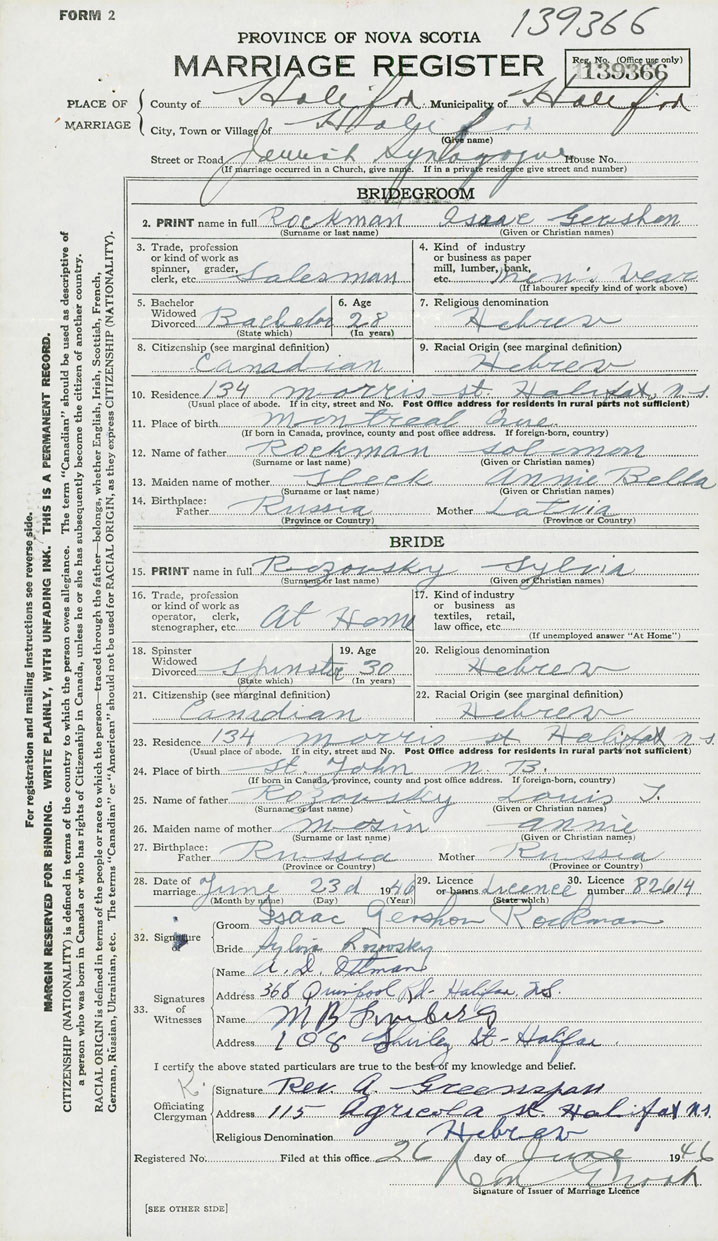 FORM 2
139366
PROVINCE OF NOVA SCOTIA
MARRIAGE REGISTER
Reg. No. (Office use only)
139366
PLACE OF MARRIAGE
County of Halifax Municipality of Halifax
City, Town or Village of Halifax
(Give name)
Street or Road Jewish Synagogue House No.
(If marriage occurred in a Church, give name. If in a private residence give street and number)
BRIDEGROOM
2. PRINT name in full Rockman Isaac Gershon
(Surname or last name) (Given or Christian names)
3. Trade, profession or kind of work as spinner, grader, clerk, etc. Salesman
4. Kind of industry or business as paper mill, lumber, bank, etc. Men's Wear
(If labourer specify kind of work above)
5. Bachelor Widowed Divorced Bachelor
(State which)
6. Age 28
(In years)
7. Religious denomination Hebrew
8. Citizenship (see marginal definition) Canadian
9. Racial Origin (see marginal definition) Hebrew
10. Residence 134 Morris St. Halifax, N.S.
(Usual place of abode. If in city, street and No. Post Office address for residents in rural parts not sufficient)
11. Place of birth Montreal Que.
(If born in Canada, province, county and post office address. If foreign-born, country)
12. Name of father Rockman Solomon
(Surname or last name) (Given or Christian names)
13. Maiden name of mother Annie Bella
(Surname or last name) (Given or Christian names)
14. Birthplace: Father Russia Mother Latvia
(Province or Country) (Province or Country)
BRIDE
15. PRINT name in full Rozovsky Sylvia
(Surname or last name) (Given or Christian names)
16. Trade, profession or kind of work as operator, clerk, stenographer, etc. At Home
17. Kind of industry or business as textiles, retail, law office, etc.
(If unemployed answer "At Home")
18. Spinster Widowed Divorced Spinster
(State which)
19. Age 30
(In years)
20. Religious denomination Hebrew
21. Citizenship (see marginal definition) Canadian
22. Racial Origin (see marginal definition) Hebrew
23. Residence 134 Morris St Halifax N.S.
(Usual place of abode. If in city, street and No. Post Office address for residents in rural parts not sufficient)
24. Place of birth St. John N.B.
(If born in Canada, province, county and post office address. If foreign-born, country)
25. Name of father Rozovsky Louis J.
(Surname or last name) (Given or Christian names)
26. Maiden name of mother Mosin Annie
(Surname or last name) (Given or Christian names)
27. Birthplace: Father Russia Mother Russia
(Province or Country) (Province or Country)
28. Date of marriage June 23d 1946
(Month by name) (Day) (Year)
29. Licence or banns Licence
(State which)
30. Licence number 82614
32. Signature of
Groom Isaac Gershon Rockman
Bride Sylvia Rozovsky
33. Signatures of Witnesses
Name A. D.
Address 368 Quinpool Rd. Halifax, N.S.
Name M B
Address 108 Shirley St - Halifax
I certify the above stated particulars are true to the best of my knowledge and belief.
K.
Officiating Clergyman
Signature Rev. A Greenspan
Address 115 Agricola St Halifax N.S.
Religious Denomination Hebrew
Registered No. Filed at this office 26 day of June 1946
Signature of Issuer of Marriage Licence
[SEE OTHER SIDE]
For registration and mailing instructions see reverse side.
MARGIN RESERVED FOR BINDING. WRITE PLAINLY, WITH UNFADING INK. THIS IS A PERMANENT RECORD.
CITIZENSHIP (NATIONALITY) is defined in terms of the country to which the person owes allegiance. The term "Canadian" should be used as descriptive of
a person who was born in Canada or who has rights of Citizenship in Canada, unless he or she has subsequently become the citizen of another country.
RACIAL ORIGIN is defined in terms of the people or race to which the person—traced through the father—belongs, whether English, Irish, Scottish, French,
German, Russian, Ukrainian, etc. The terms "Canadian" or "American" should not be used for RACIAL ORIGIN, as they express CITIZENSHIP (NATIONALITY).